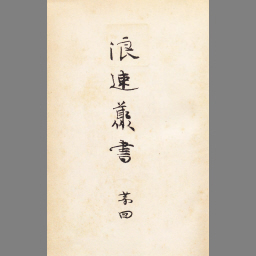 浪速叢書 第四